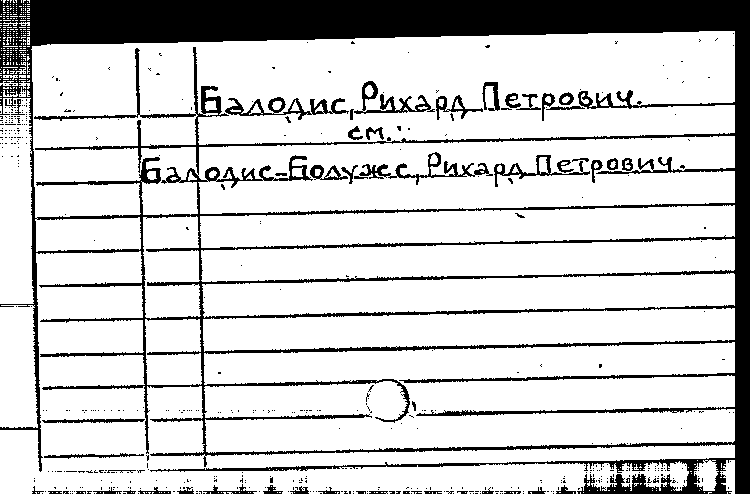 Балодис, Рихард Петрович.
см.:
Балодис-Болужс, Рихард Петрович.